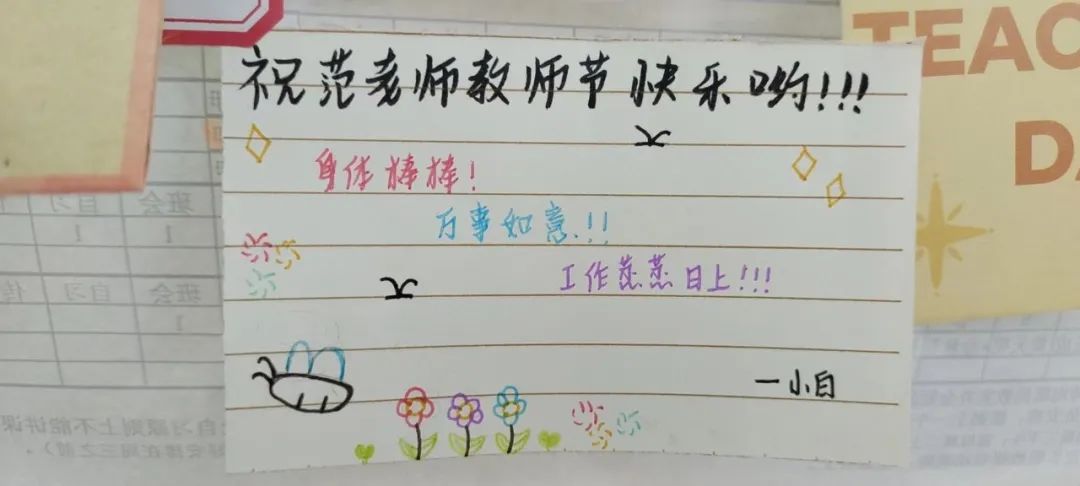 祝范老师教师节快乐哟!!!
身体棒棒!
万事如意.!!
工作蒸蒸日上!!!
一小白
TEAC
DA
班会 自习
1 1
班会 自习
1